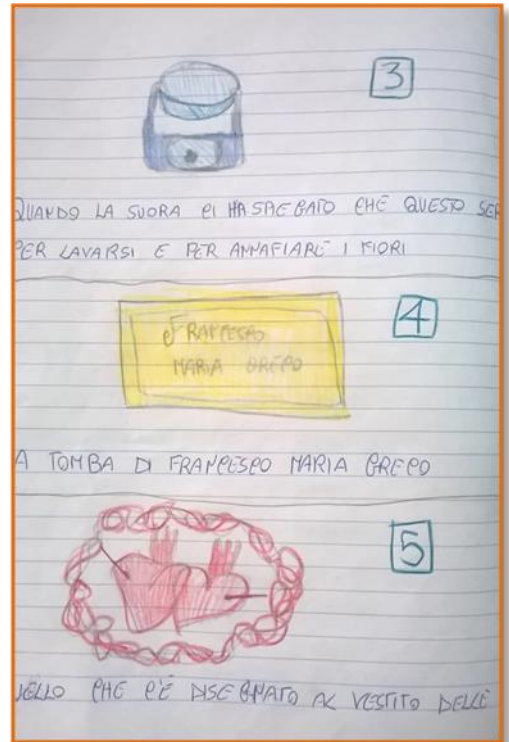 3
QUANDO LA SUORA CI HA SPIEGATO CHE QUESTO SER
PER LAVARSI E PER ANNAFIARE I FIORI
4
FRANCESCO
MARIA GRECO
A TOMBA DI FRANCESCO MARIA GRECO
5
UELLO CHE C'È DISEGNATO AL VESTITO DELLE